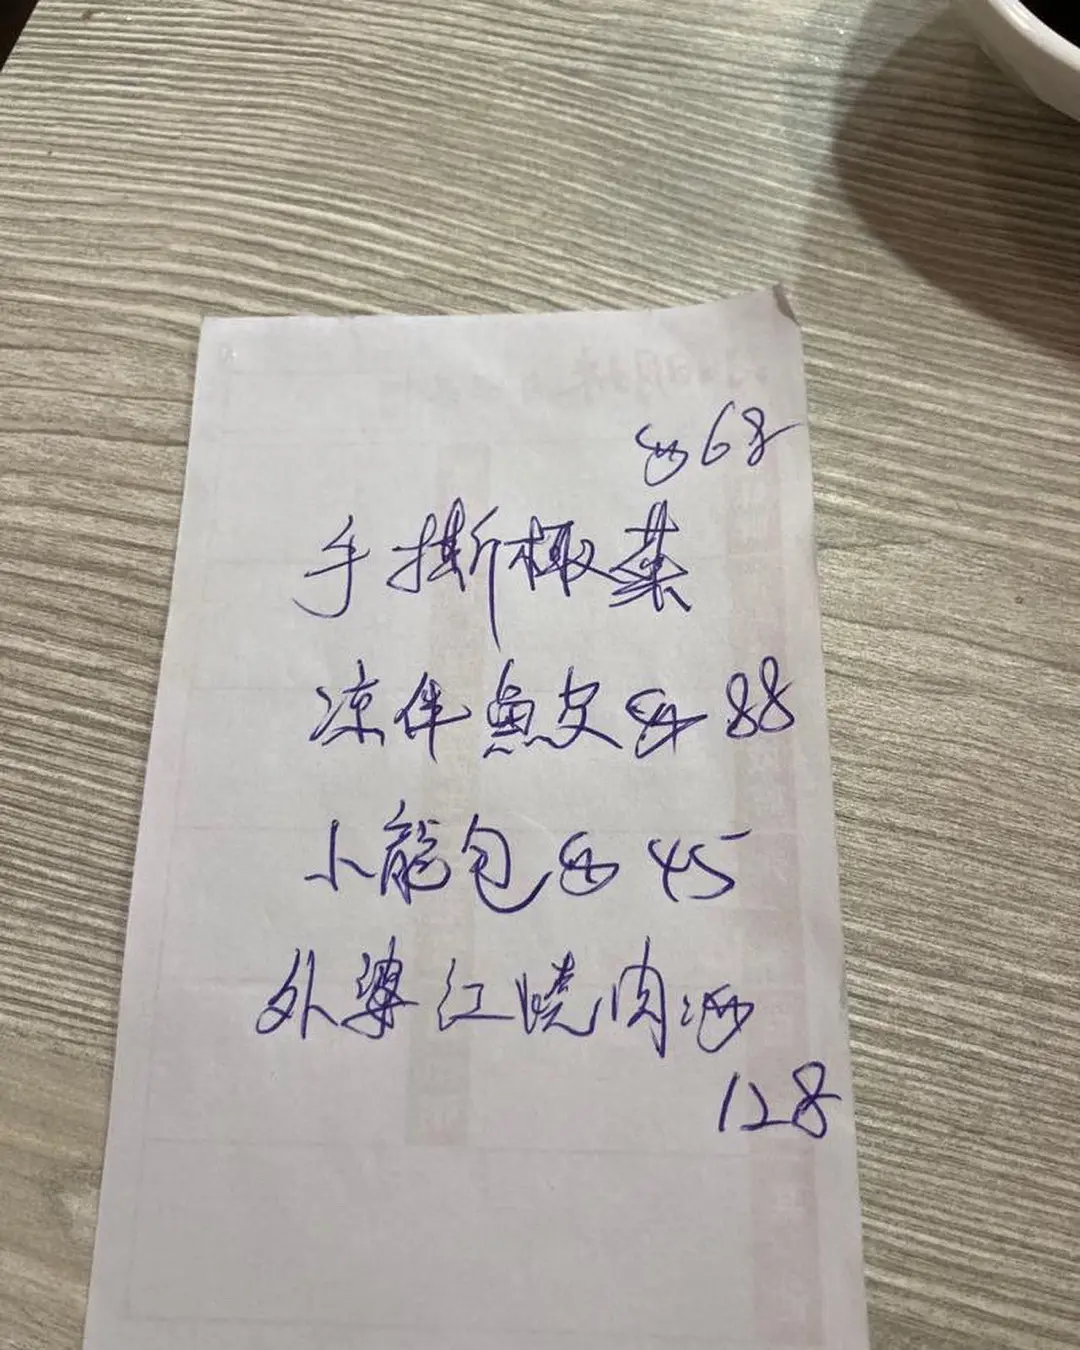 $68
手撕椰菜
凉伴魚皮 $88
小龍包 $45
外婆红燒肉 $
128